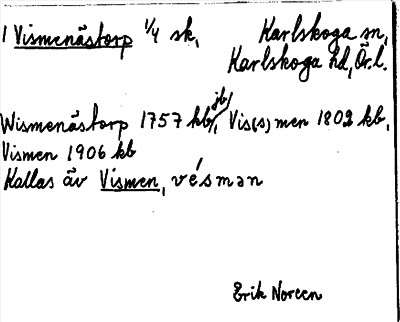 1 Vismenästorp 1/4 sk, Karlskoga sn,
Karlskoga hd, Ör. l.
jb/
Wismenästorp 1757 kb/, Vis(s)men 1802 kb,
Vismen 1906 kb
Kallas äv Vismen, vésmən
Erik Noreen